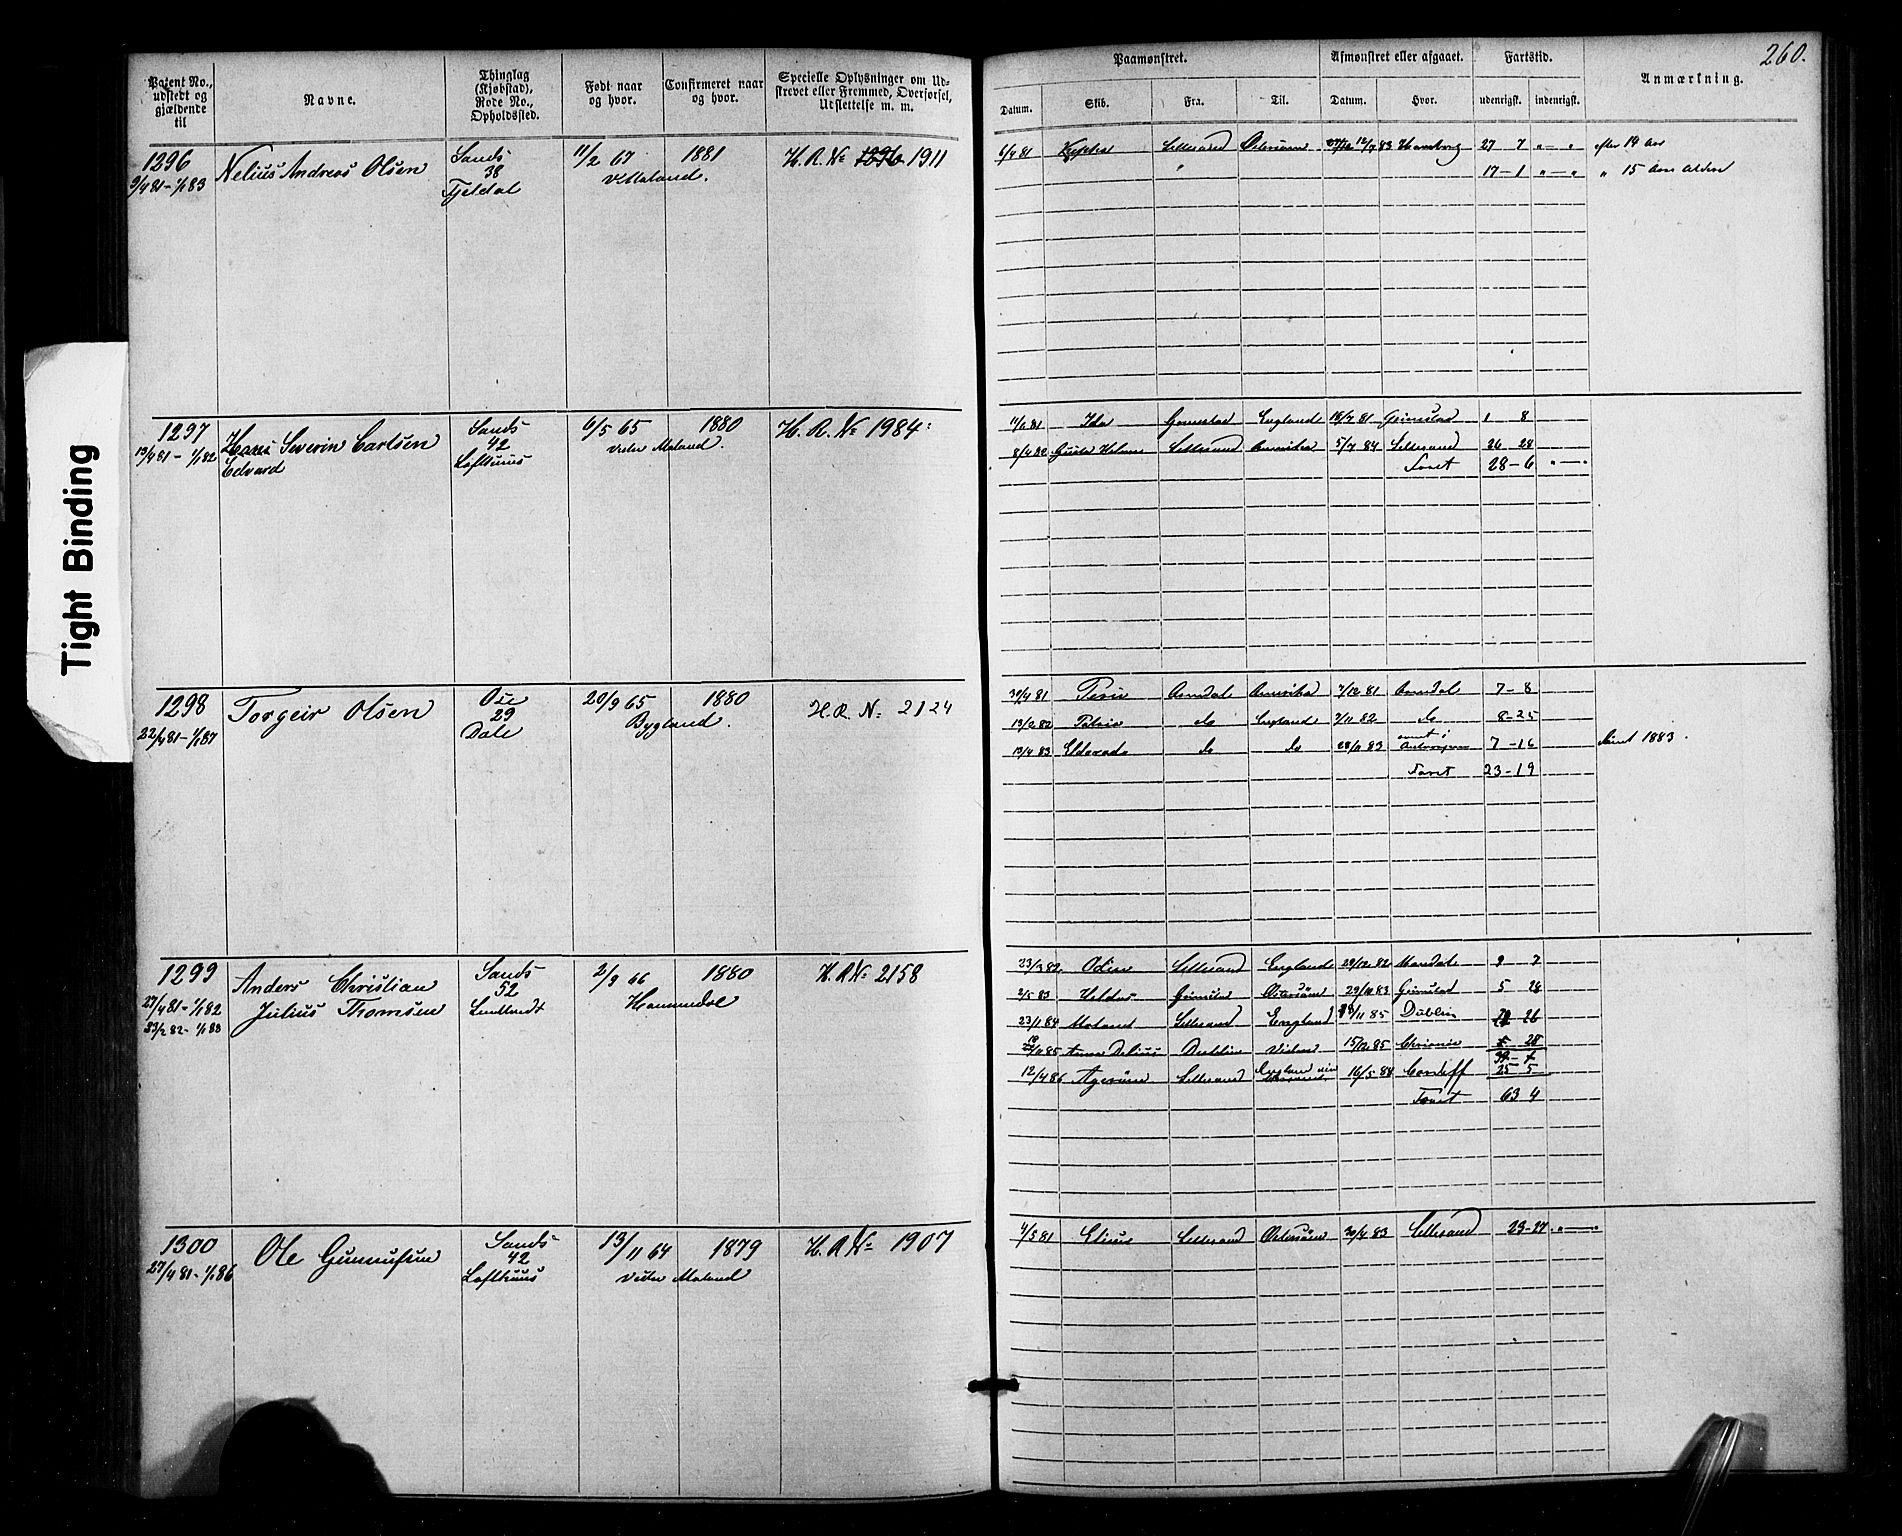 260.
Patent No., udstedt og gjældende til
Navne.
Thinglag (Kjøbstad), Rode No., Opholdssted.
Født naar og hvor.
Confirmeret naar og hvor.
Specielle Oplysninger om Udstrevet eller Fremmed, Overførsel, Udslettelse m. m.
Paamønstret.
Afmønstret eller afgaaet.
Fartstid.
Anmærkning.
Datum. Skib. Fra. Til. Datum. Hvor. udenrigsk. indenrigsk.
1296 Nelius Andreas Olsen Sands 11/2 67 1881 H. R. No 1896 1911
9/4 81 - 1/1 83 38 V. Moland.
Fjeldal
6/4 81 Lillesand Østersøen 12/7 83 Hamburg 27 7 " — " efter 14 Aar
" 17 - 1 " — " " 15 Aars Alder
1297 Hans Severin Carlsen Sands 6/5 65 1880 H. R. No 1984
19/4 81 - 1/1 82 Edvard 42 Vester Moland.
Lofthuus
Ida Grimstad England 18/7 81 Grimstad 1 8
8/4 82 Lillesand Amerika 5/7 84 Lillesand 26 28
Faret 28 - 6 " — "
1298 Torgeir Olsen Ose 20/9 65 1880 H. R. No 2124
22/4 81 - 1/1 87 29 Bygland.
Dale
30/4 81 Arendal Amerika 7/12 81 Arendal 7 - 8
19/2 82 Patria do England 7/11 82 do 8 - 25
19/4 83 Eldorado do do 28/11 83 Antwerpen 7 - 16 1883.
Faret 23 - 19
1299 Anders Christian Sands 2/9 66 1880 H. R. No 2158
27/4 81 - 1/1 82 Julius Thomsen 52 Hommedal
23/2 82 - 1/1 83
23/3 82 Odin Lillesand England 29/12 82 Mandal 9 7
2/5 83 Grimstad Østersøen 29/10 83 Grimstad 5 26
23/1 84 Moland Lillesand England 85 Dublin 26
Anna Delius Dublin 15/12 85 28
12/4 86 Lillesand England 16/5 88 Cardiff 25 5
Faret 63 4
1300 Ole Gunnufsen Sands 13/11 64 1879 H. R. No 1907
27/4 81 - 1/1 86 42 Vester Moland
Lofthuus
4/5 81 Lillesand Østersøen 30/4 83 Lillesand 23 - 27 " — "
Tight Binding